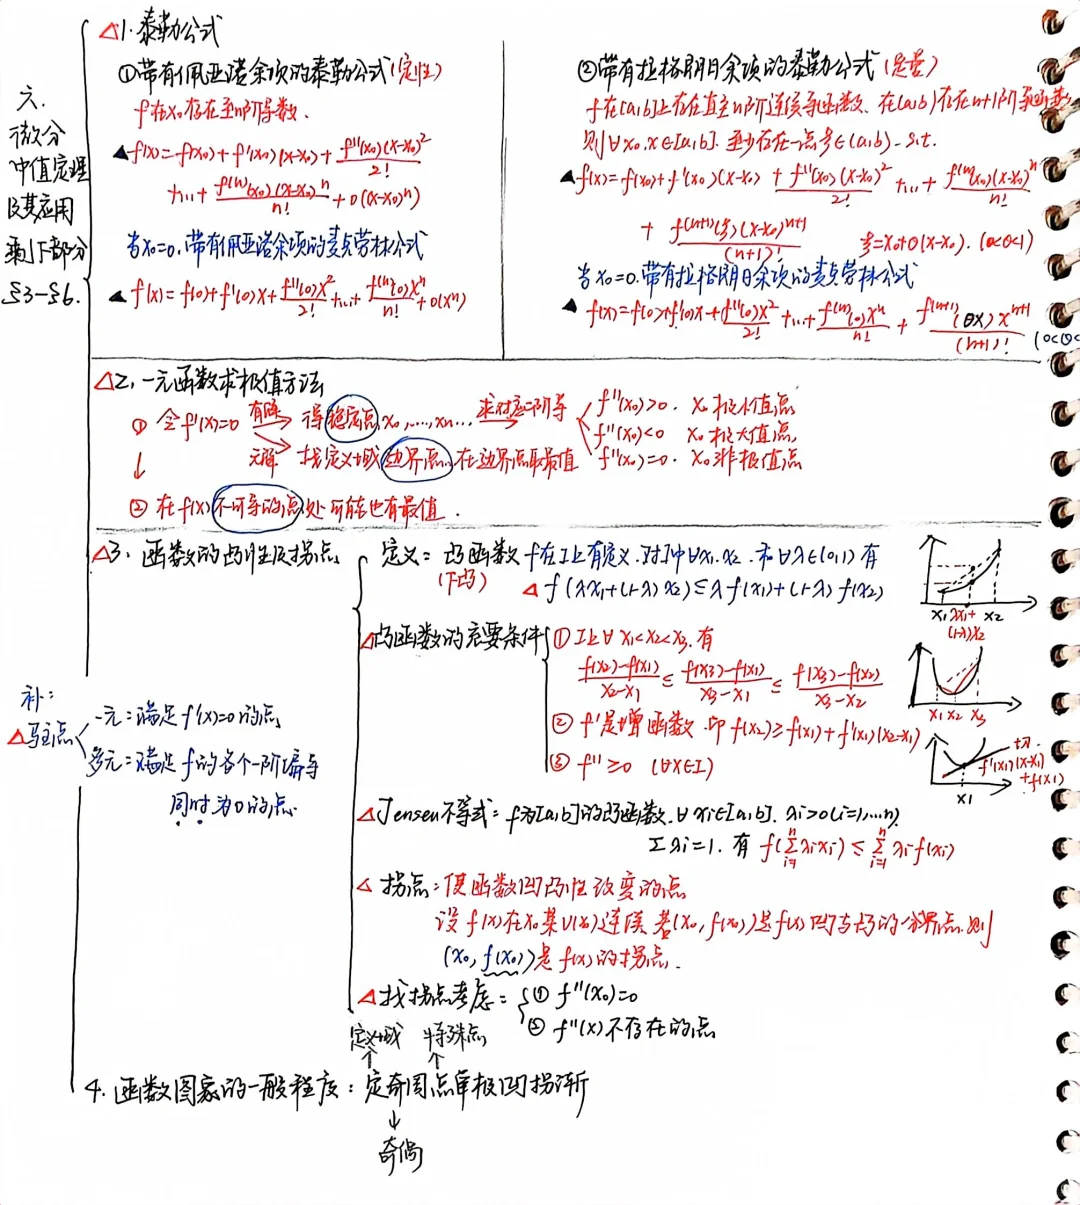 六.
微分
中值定理
及其应用
剩下部分
§3—§6.
△1. 泰勒公式
①带有佩亚诺余项的泰勒公式(定性)
f在x₀存在至n阶导数.
▲f(x)=f(x₀)+f'(x₀)(x-x₀)+\frac{f''(x₀)(x-x₀)²}{2!}
+…+\frac{f⁽ⁿ⁾(x₀)(x-x₀)ⁿ}{n!}+o((x-x₀)ⁿ)
当x₀=0,带有佩亚诺余项的麦克劳林公式
▲f(x)=f(0)+f'(0)x+\frac{f''(0)x²}{2!}+…+\frac{f⁽ⁿ⁾(0)xⁿ}{n!}+o(xⁿ)
②带有拉格朗日余项的泰勒公式(定量)
f在[a,b]上存在直至n阶连续导函数、在(a,b)存在n+1阶导函数
则∀x₀,x∈[a,b],至少存在一点ξ∈(a,b),s.t.
▲f(x)=f(x₀)+f'(x₀)(x-x₀)+\frac{f''(x₀)(x-x₀)²}{2!}+…+\frac{f⁽ⁿ⁾(x₀)(x-x₀)ⁿ}{n!}
+\frac{f⁽ⁿ⁺¹⁾(ξ)(x-x₀)ⁿ⁺¹}{(n+1)!} ξ=x₀+θ(x-x₀).(0<θ<1)
当x₀=0.带有拉格朗日余项的麦克劳林公式
▲f(x)=f(0)+f'(0)x+\frac{f''(0)x²}{2!}+…+\frac{f⁽ⁿ⁾(0)xⁿ}{n!}+\frac{f⁽ⁿ⁺¹⁾(θx)xⁿ⁺¹}{(n+1)!} (0<θ<
△2、一元函数求极值方法
①令f'(x)=0 有解→ 得稳定点x₀,…,xₙ… 求对应二阶导→
f''(x₀)>0. x₀极小值点
f''(x₀)<0 x₀极大值点,
f''(x₀)=0. x₀非极值点
无解→ 找定义域边界点,在边界点取最值
↓
②在f(x)不可导的点处可能也有最值.
△3、函数的凸性及拐点
定义:凸函数 f在I上有定义.对I中∀x₁.x₂.和∀λ∈(0,1)有
(下凸) △ f(λx₁+(1-λ)x₂)≤λf(x₁)+(1-λ)f(x₂)
x₁ λx₁+ x₂
(1-λ)x₂
△凸函数的充要条件
①I上∀x₁<x₂<x₃,有
\frac{f(x₂)-f(x₁)}{x₂-x₁}≤\frac{f(x₃)-f(x₁)}{x₃-x₁}≤\frac{f(x₃)-f(x₂)}{x₃-x₂}
x₁ x₂ x₃
②f'是增函数.即f(x₂)≥f(x₁)+f'(x₁)(x₂-x₁)
③f''≥0 (∀x∈I)
f'(x₁)(x-x₁)
+f(x₁)
x₁
补:
△驻点
一元:满足f'(x)=0的点
多元:满足f的各个一阶偏导
同时为0的点.
△Jensen不等式:f为[a,b]的凸函数.∀xᵢ∈[a,b].λᵢ>0(i=1,…,n),
Σλᵢ=1.有 f(\sum_{i=1}^{n}λᵢxᵢ)≤\sum_{i=1}^{n}λᵢf(xᵢ)
△ 拐点:使函数凹凸性改变的点
设f(x)在x₀某U(x₀)连续.若(x₀,f(x₀))是f(x)凹与凸的分界点.则
(x₀,f(x₀))是f(x)的拐点.
△找拐点考虑:
①f''(x₀)=0
②f''(x)不存在的点
定义域 特殊点
↑ ↑
4.函数图象的一般程序:定奇周点单极凹拐渐
↓
奇偶